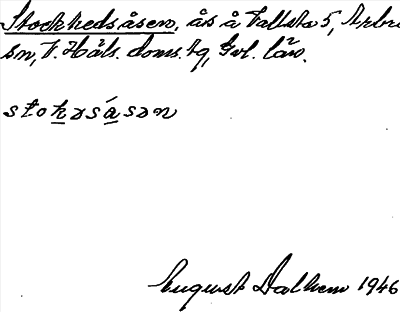 Stockhedsåsen, ås å Vallsta 5, Arbrå
sn, V. Häls. doms. tg, Gvl. län.
stokəsásən
August Dalhem 1946